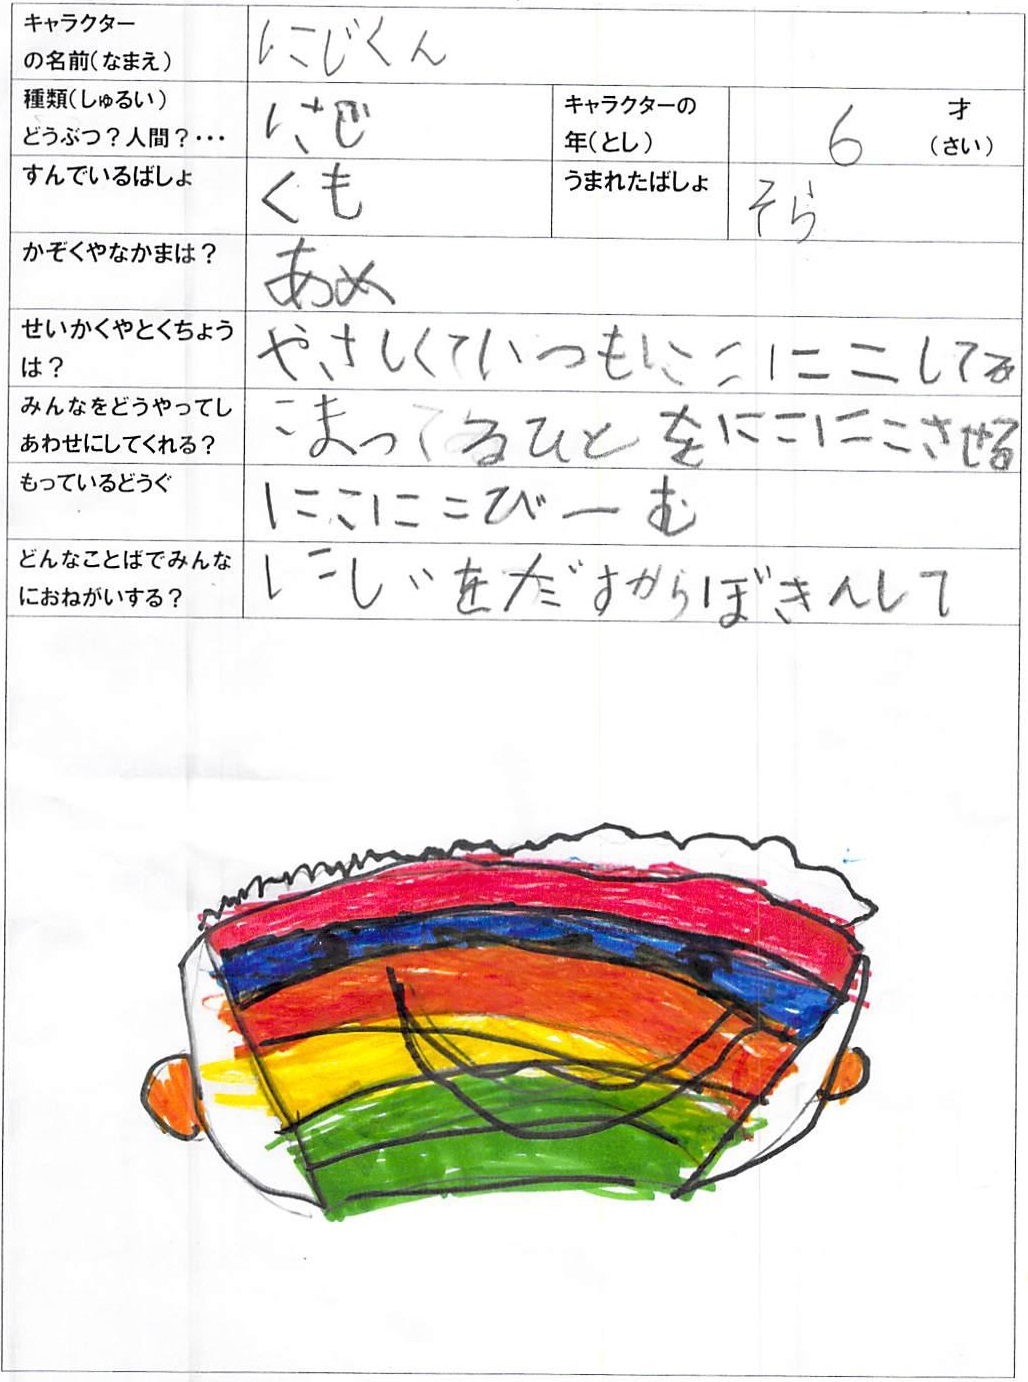 キャラクター
の名前(なまえ)
にじくん
種類(しゅるい)
どうぶつ?人間?・・・
にじ
キャラクターの
年(とし)
6
才
(さい)
すんでいるばしょ
くも
うまれたばしょ
そら
かぞくやなかまは?
あめ
せいかくやとくちょう
は?
やさしくていつもにこにこしてる
みんなをどうやってし
あわせにしてくれる?
こまってるひとをにこにこさせる
もっているどうぐ
にこにこびーむ
どんなことばでみんな
におねがいする?
にじをだすからぼきんして